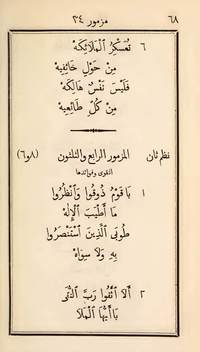 ٦٨ مزمور ٣٤
٦ تُعَسْكِرُ ٱلْمَلَائِكَهْ
مِنْ حَوْلِ خَائِفِيهِ
فَلَيْسَ نَفْسٌ هَالِكَهْ
مِنْ كُلِّ طَائِعِيهِ
نظم ثان المزمور الرابع والثلثون (٨و٦)
التقوى وفوائدها
١ يَا قَوْمُ ذُوقُوا وَٱنْظُرُوا
مَا أَطْيَبَ ٱلْإِلٰهْ
طُوبَى ٱلَّذِينَ ٱسْتَنْصَرُوا
بِهِ وَلَا سِوَاهْ
٢ أَلَا ٱتَّقُوا رَبَّ ٱلتُّقَى
يَا أَيُّهَا ٱلْمَلَا